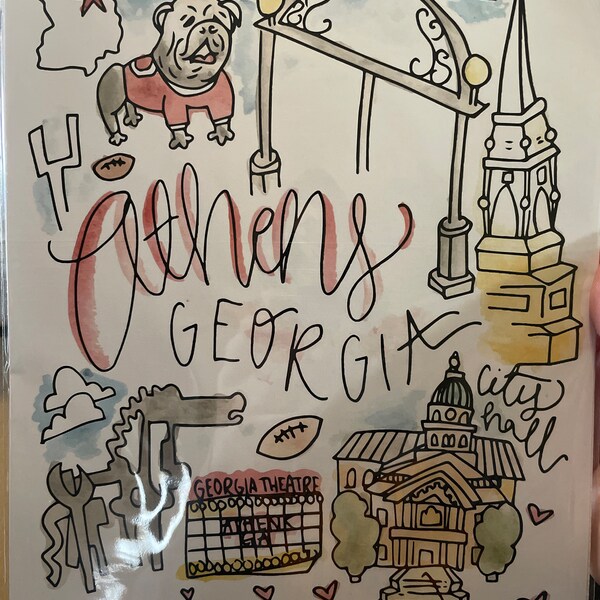 Athens
GEORGIA
city
hall
GEORGIA THEATRE
ATHENS
GA